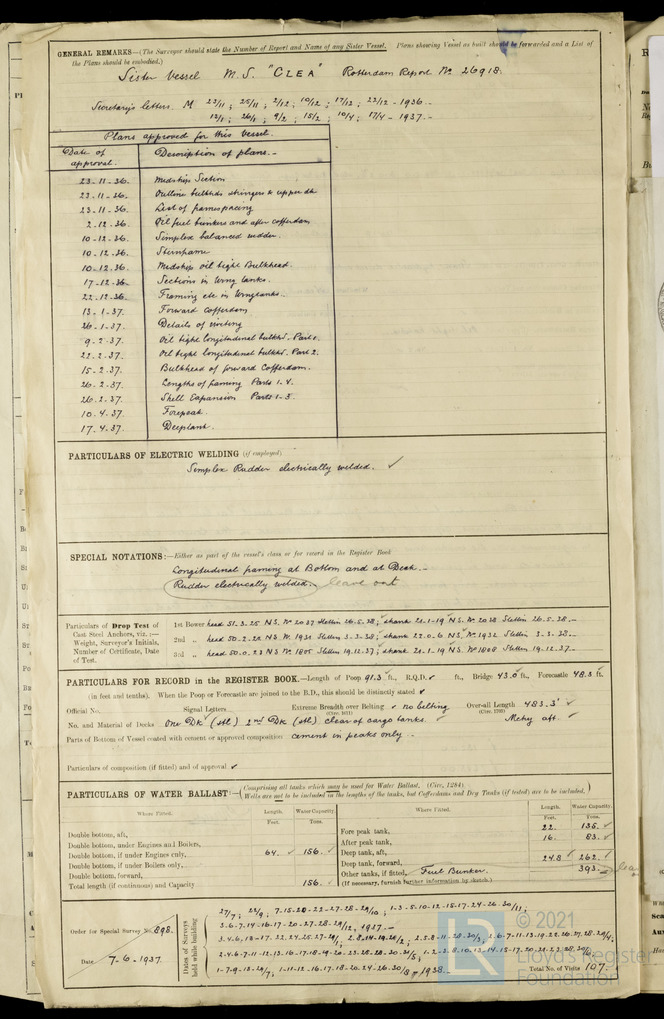 GENERAL REMARKS—(The Surveyor should state the Number of Report and Name of any Sister Vessel. Plans showing Vessel as built should be forwarded and a List of
the Plans should be embodied.)
Sister Vessel M.S. "CLEA" Rotterdam Report No 26918.
Secretary's letters M 23/11; 25/11; 2/12; 10/12; 17/12; 22/12 - 1936.-
13/1; 26/1; 9/2; 15/2; 10/4; 17/4 - 1937.-
Plans approved for this vessel.
Date of approval. Description of plans.-
23-11-36. Midship Section
23-11-36. Outline bulkhds stringers & upper dk
23-11-36. List of frame spacing
2-12-36. Oil fuel bunkers and after cofferdam
10-12-36. Simplex balanced rudder.
10-12-36. Sternframe
10-12-36. Midship oil tight Bulkhead.
17-12-36. Sections in wing tanks.
22-12-36. Framing etc in wingtanks.
13-1-37. Forward cofferdam
26-1-37. Details of riveting
9-2-37. Oil tight longitudinal bulkhd. Part 1.
22-2-37. Oil tight longitudinal bulkhd. Part 2.
15-2-37. Bulkhead of forward Cofferdam.
26-2-37. Lengths of framing Parts 1-4.
26-2-37. Shell Expansion Parts 1-3.
10-4-37. Forepeak.
17-4-37. Deeptank.
PARTICULARS OF ELECTRIC WELDING (if employed)
Simplex Rudder electrically welded. ✓
SPECIAL NOTATIONS:—Either as part of the vessel's class or for record in the Register Book
Longitudinal framing at Bottom and at Deck.-
Rudder electrically welded. leave out
Particulars of Drop Test of
Cast Steel Anchors, viz.:—
Weight, Surveyor's Initials,
Number of Certificate, Date
of Test.
1st Bower head 51.3.25 NS. No 2037 Stettin 26.5.38; shank 21-1-19 NS. No 2038 Stettin 26.5.38.-
2nd „ head 50.2.22 NS No. 1931 Stettin 3-3-38; shank 22.0.6 NS. No 1932 Stettin 3-3-38.-
3rd „ head 50.0.23 NS No 1805 Stettin 19.12.37; shank 21-1-19 NS. No 1808 Stettin 19.12.37-
PARTICULARS FOR RECORD in the REGISTER BOOK.—Length of Poop 91.3 ft., R.Q.D. ✓ ft., Bridge 43.0 ft., Forecastle 48.3 ft.
(in feet and tenths). When the Poop or Forecastle are joined to the B.D., this should be distinctly stated ✓
Official No. Signal Letters Extreme Breadth over Belting ✓ no belting Over-all Length 483.3' ✓
No. and Material of Decks One Dk (stl) 2nd Dk (stl) clear of cargo tanks. Mchy aft. ✓
Parts of Bottom of Vessel coated with cement or approved composition cement in peaks only
Particulars of composition (if fitted) and of approval ✓
PARTICULARS OF WATER BALLAST—(Comprising all tanks which may be used for Water Ballast. (Circ. 1284)
Wells are not to be included in the lengths of the tanks, but Cofferdams and Dry Tanks (if tested) are to be included.)
Where Fitted. Length. Water Capacity. Where Fitted. Length. Water Capacity.
Feet. Tons. Feet. Tons.
Double bottom, aft, Fore peak tank, 22. 135. ✓
Double bottom, under Engines and Boilers, After peak tank, 16. 83. ✓
Double bottom, if under Engines only, 64. ✓ 156. ✓ Deep tank, aft,
Double bottom, if under Boilers only, Deep tank, forward, 24.8 ✓ 262. ✓
Double bottom, forward, Other tanks, if fitted, Fuel Bunker. 393.
Total length (if continuous) and Capacity 156. ✓ (If necessary, furnish further information by sketch.)
Order for Special Survey No. 898.
Date 7-6-1937.
Dates of Surveys held while building
Total No. of Visits 107.
© 2021
Lloyd's Register
Foundation